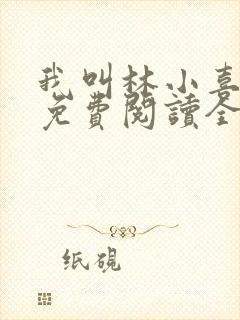 我叫林小喜
免費閱讀全
纸砚